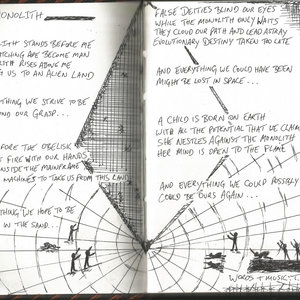 MONOLITH
LITH STANDS BEFORE ME
TCHING APE BECOME MAN
LITH RISES ABOVE ME
G US TO AN ALIEN LAND
THING WE STRIVE TO BE
OND OUR GRASP...
FORE THE OBELISK
FIRE WITH OUR HANDS
INSIDE THE MAINFRAME
MACHINES TO TAKE US FROM THIS LAND
THING WE HOPE TO BE
IN THE SAND...
FALSE DEITIES BLIND OUR EYES
WHILE THE MONOLITH ONLY WAITS
THEY CLOUD OUR PATH AND LEAD ASTRAY
EVOLUTIONARY DESTINY TAKEN TOO LATE
AND EVERYTHING WE COULD HAVE BEEN
MIGHT BE LOST IN SPACE...
A CHILD IS BORN ON EARTH
WITH ALL THE POTENTIAL THAT WE CLAIM
SHE NESTLES AGAINST THE MONOLITH
HER MIND IS OPEN TO THE FLAME
AND EVERYTHING WE COULD POSSIBLY
COULD BE OURS AGAIN...
WORDS + MUSIC: